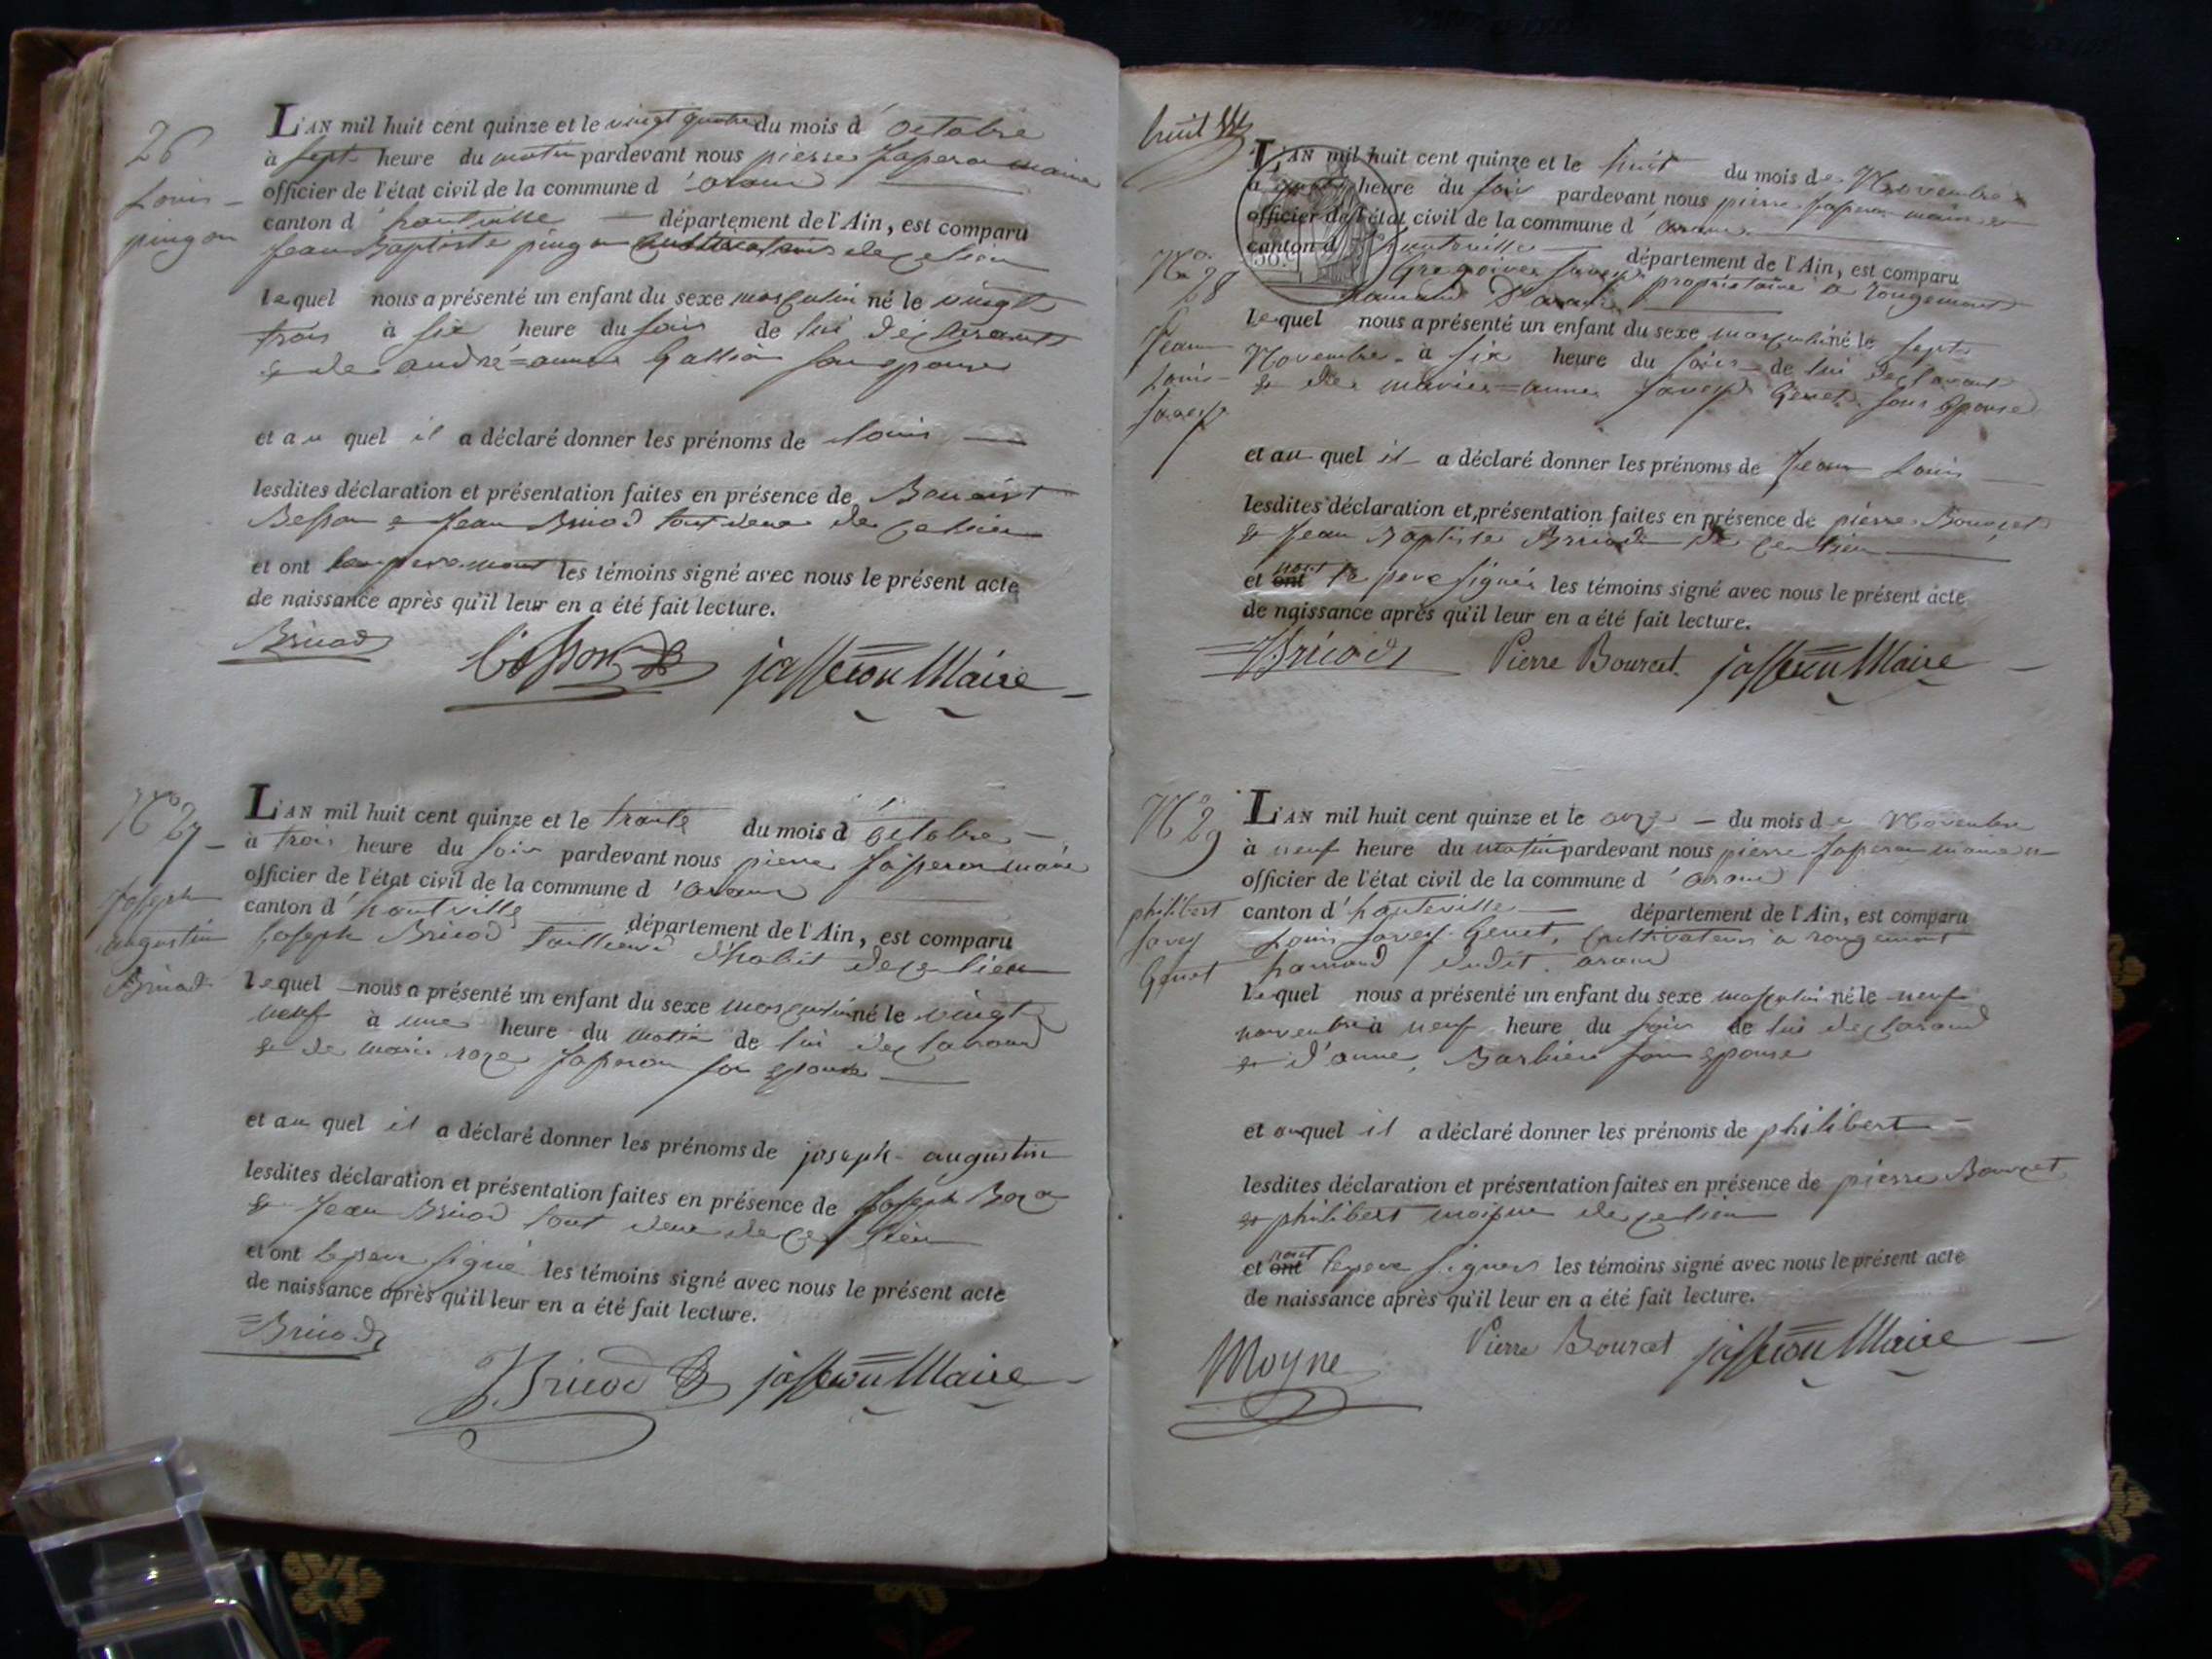 26
Louis
pingon
L'AN mil huit cent quinze et le vingt quatre du mois d'octobre
à sept heure du matin pardevant nous pierre Jasseron maire
officier de l'état civil de la commune d'aranc
canton d'hautville département de l'Ain, est comparu
Jean Baptiste pingon cultivateur de ce lieu
lequel nous a présenté un enfant du sexe masculin né le vingt
trois à six heure du soir de lui déclarant
& de andré=anne Gallion son epouse
et au quel il a déclaré donner les prénoms de Louis
lesdites déclaration et présentation faites en présence de Benoist
Besson & Jean Briod tout deux de ce lieu
et ont les témoins signé avec nous le présent acte
de naissance après qu'il leur en a été fait lecture.
Briod Besson jasseron Maire
N° 27
Joseph
augustin
Briod
L'AN mil huit cent quinze et le trante du mois d'octobre
à trois heure du soir pardevant nous pierre Jasseron maire
officier de l'état civil de la commune d'aranc
canton d'hautville département de l'Ain, est comparu
Joseph Briod tailleur d'habit de ce lieu
lequel nous a présenté un enfant du sexe masculin né le vingt
neuf à une heure du matin de lui declarand
& de marie roze Jasseron son epouse
et au quel il a déclaré donner les prénoms de joseph augustin
lesdites déclaration et présentation faites en présence de Joseph
& Jean Briod tout deux de ce lieu
et ont le pere signé les témoins signé avec nous le présent acte
de naissance après qu'il leur en a été fait lecture.
Briod JBriod jasseron Maire
huit
N° 28
Jean
Louis
Savey
L'AN mil huit cent quinze et le huit du mois de Novembre
à heure du soir pardevant nous pierre Jasseron maire
officier de l'état civil de la commune d'aranc
canton d'hauteville département de l'Ain, est comparu
Gregoire Savey propriétaire a rougemont
hamaud d'aranc
lequel nous a présenté un enfant du sexe masculin né le sept
Novembre à six heure du soir de lui declarant
& de marie=anne Savey Genet son epouse
et au quel il a déclaré donner les prénoms de Jean Louis
lesdites déclaration et présentation faites en présence de pierre Bourcet
& Jean Baptiste Briod de ce lieu
et ont nont le pere signés les témoins signé avec nous le présent acte
de naissance après qu'il leur en a été fait lecture.
JBriod Pierre Bourcet jasseron Maire
N° 29
philibert
Savey
Genet
L'AN mil huit cent quinze et le onze du mois de Novembre
à neuf heure du matin pardevant nous pierre Jasseron maire
officier de l'état civil de la commune d'aranc
canton d'hauteville département de l'Ain, est comparu
Louis Savey Genet, cultivateur a rougemont
hamaud dudit aranc
lequel nous a présenté un enfant du sexe masculin né le neuf
novembre à neuf heure du soir de lui declarand
& d'anne Barbier son epouse
et auquel il a déclaré donner les prénoms de philibert
lesdites déclaration et présentation faites en présence de pierre Bourcet
& philibert moisne de ce lieu
et ont nont le pere signer les témoins signé avec nous le présent acte
de naissance après qu'il leur en a été fait lecture.
Moyne Pierre Bourcet jasseron Maire